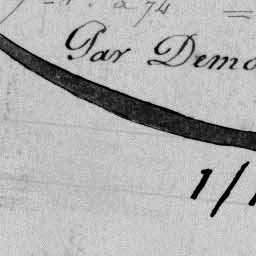 a 74
Par Demo
1/1